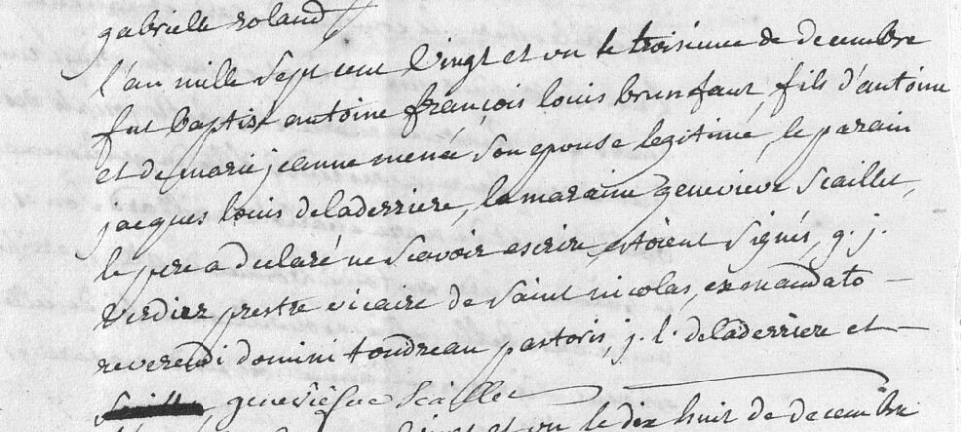 gabrielle roland
l'an mille sept cent vingt et un le troisieme de decembre
fut baptisé antoine françois louis brunfaut, fils d'antoine
et de marie jeanne menée son epouse legitime, le parain
jacques louis deladerriere, la maraine genevieve Scaillet,
le pere a declaré ne scavoir escrire estoient signés, g. j.
verdier prestre vicaire de saint nicolas, ex mandato
reverendi domini tondreau pastoris, j. l. deladerriere et
geneviefve Scaillet
vingt et un le dix huit de decembre